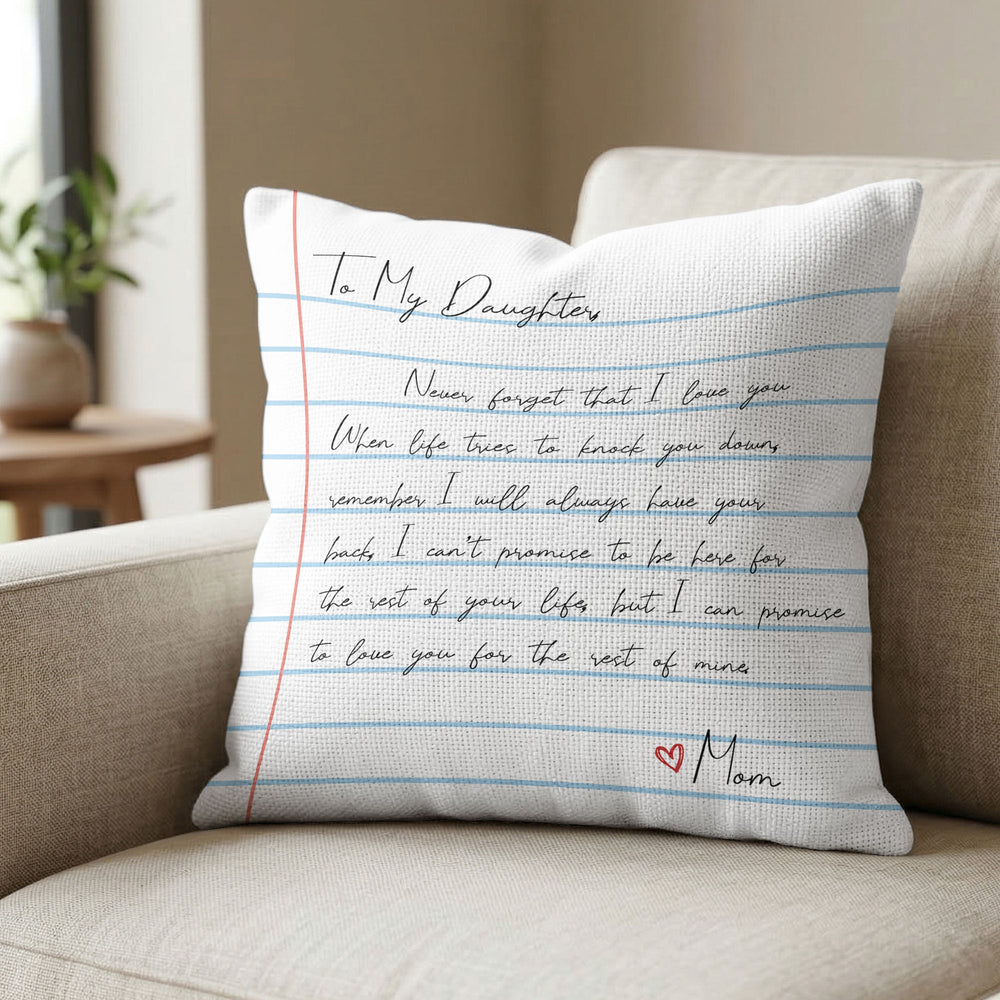 To My Daughter,
Never forget that I love you
When life tries to knock you down,
remember I will always have your
back, I can't promise to be here for
the rest of your life, but I can promise
to love you for the rest of mine.
Mom